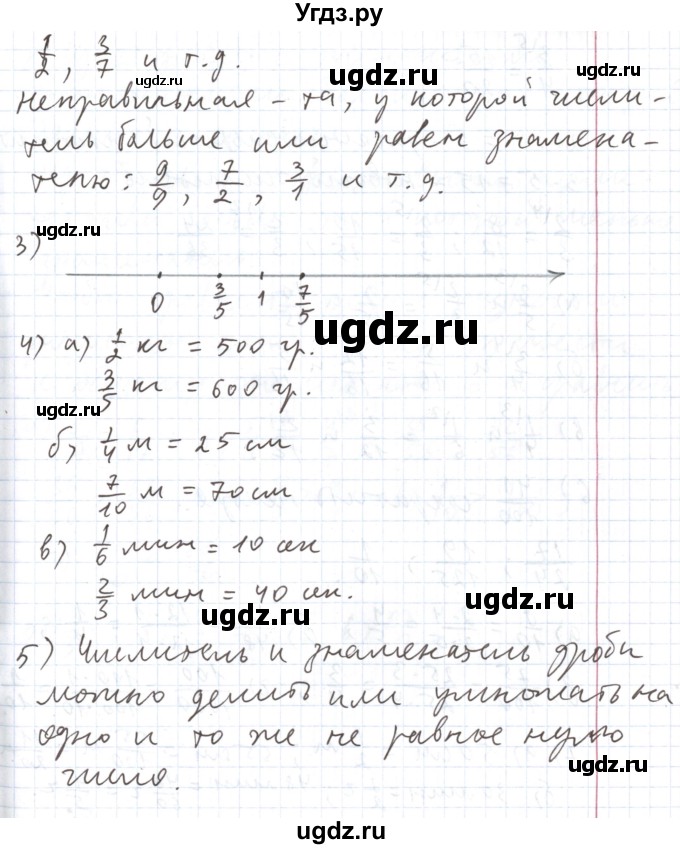 Угдз.ру
1/2, 3/7 и т.д.
ugdz.ru ugdz.ru
Неправильная – та, у которой числи-
тель больше или равен знамена-
телю: 9/9, 7/2, 3/1 и т.д.
ugdz.ru ugdz.ru
3)
0 3/5 1 7/5
ugdz.ru
4) а) 1/2 кг = 500 гр.
3/5 кг = 600 гр.
ugdz.ru
б) 1/4 м = 25 см
7/10 м = 70 см
в) 1/6 мин = 10 сек
2/3 мин = 40 сек.
ugdz.ru ugdz.ru
5) Числитель и знаменатель дроби
можно делить или умножать на
одно и то же не равное нулю
ugdz.ru
число.
ugdz.ru
ugdz.ru